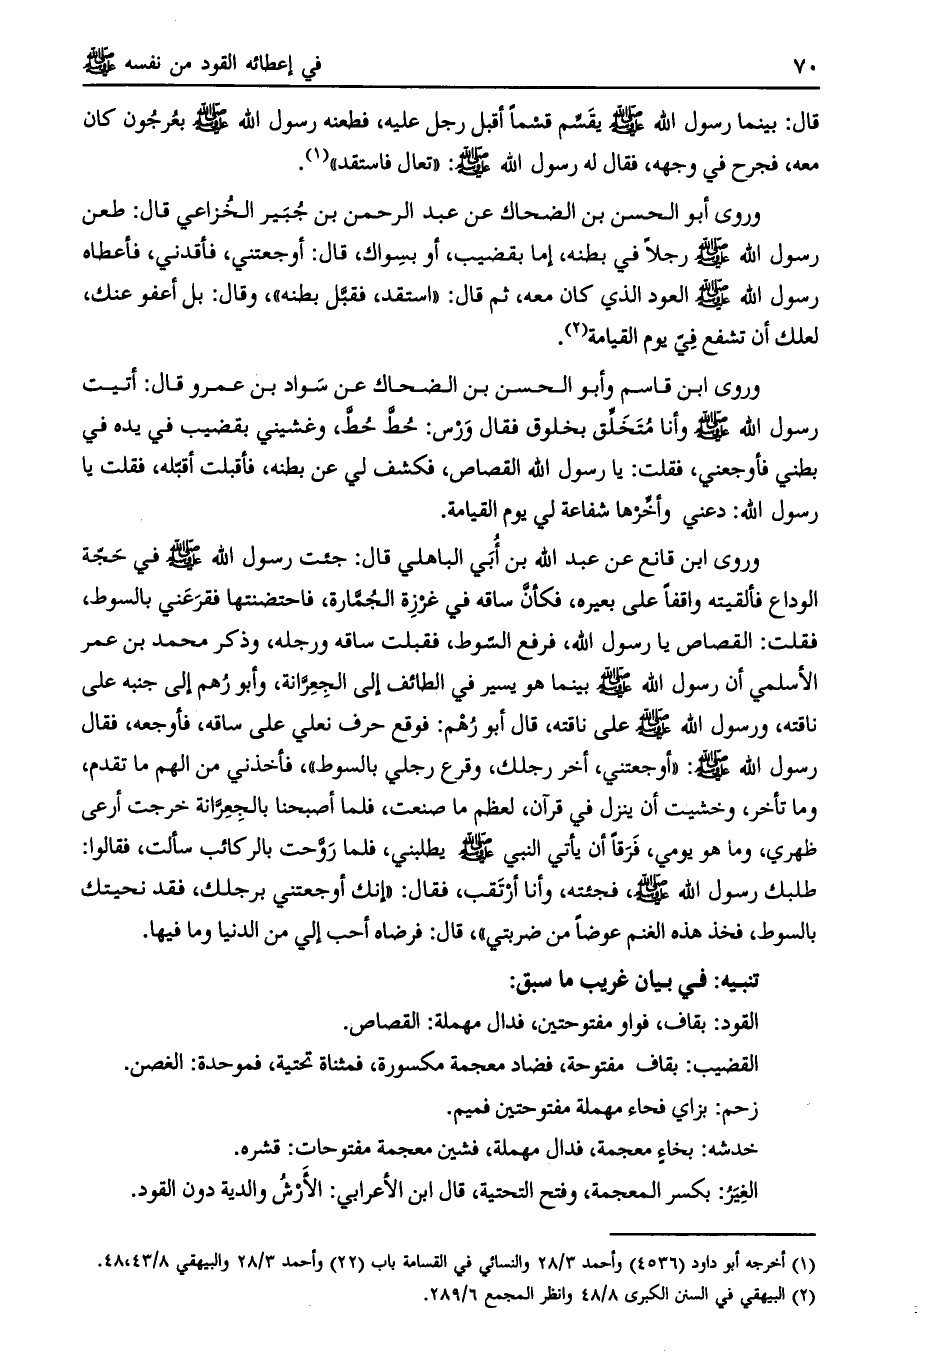 ٧٠ في إعطائه القود من نفسه ﷺ
قال: بينما رسول الله ﷺ يقَسِّم قسْماً أقبل رجل عليه، فطعنه رسول الله ﷺ بعُرجُون كان
معه، فجرح في وجهه، فقال له رسول الله ﷺ: «تعال فاستقد»(١).
وروى أبو الحسن بن الضحاك عن عبد الرحمن بن جُبَير الخُزاعي قال: طعن
رسول الله ﷺ رجلاً في بطنه، إما بقضيب، أو بسِواك، قال: أوجعتني، فأقدني، فأعطاه
رسول الله ﷺ العود الذي كان معه، ثم قال: «استقد، فقبَّل بطنه»، وقال: بل أعفو عنك،
لعلك أن تشفع فِيّ يوم القيامة(٢).
وروى ابن قاسم وأبو الحسن بن الضحاك عن سَواد بن عمرو قال: أتيت
رسول الله ﷺ وأنا مُتَخَلِّق بخلوق فقال وَرْس: حُطَّ حُطَّ، وغشيني بقضيب في يده في
بطني فأوجعني، فقلت: يا رسول الله القصاص، فكشف لي عن بطنه، فأقبلت أقبّله، فقلت يا
رسول الله: دعني وأخِّرْها شفاعة لي يوم القيامة.
وروى ابن قانع عن عبد الله بن أُبَي الباهلي قال: جئت رسول الله ﷺ في حَجّة
الوداع فألقيته واقفاً على بعيره، فكأنَّ ساقه في غرْزِة الجُمَّارة، فاحتضنتها فقرَعَني بالسوط،
فقلت: القصاص يا رسول الله، فرفع السّوط، فقبلت ساقه ورجله، وذكر محمد بن عمر
الأسلمي أن رسول الله ﷺ بينما هو يسير في الطائف إلى الجِعِرَّانة، وأبو رُهم إلى جنبه على
ناقته، ورسول الله ﷺ على ناقته، قال أبو رُهْم: فوقع حرف نعلي على ساقه، فأوجعه، فقال
رسول الله ﷺ: «أوجعتني، أخر رجلك، وقرع رجلي بالسوط»، فأخذني من الهم ما تقدم،
وما تأخر، وخشيت أن ينزل في قرآن، لعظم ما صنعت، فلما أصبحنا بالجِعِرَّانة خرجت أرعى
ظهري، وما هو يومي، فَرَقاً أن يأتي النبي ﷺ يطلبني، فلما رَوَّحت بالركائب سألت، فقالوا:
طلبك رسول الله ﷺ، فجئته، وأنا أرْتَقب، فقال: «إنك أوجعتني برجلك، فقد نحيتك
بالسوط، فخذ هذه الغنم عوضاً من ضربتي»، قال: فرضاه أحب إلي من الدنيا وما فيها.
تنبيه: في بيان غريب ما سبق:
القود: بقاف، فواو مفتوحتين، فدال مهملة: القصاص.
القضيب: بقاف مفتوحة، فضاد معجمة مكسورة، فمثناة تحتية، فموحدة: الغصن.
زحم: بزاي فحاء مهملة مفتوحتين فميم.
خدشه: بخاءٍ معجمة، فدال مهملة، فشين معجمة مفتوحات: قشره.
الغِيَرُ: بكسر المعجمة، وفتح التحتية، قال ابن الأعرابي: الأَرْشُ والدية دون القود.
(١) أخرجه أبو داود (٤٥٣٦) وأحمد ٢٨/٣ والنسائي في القسامة باب (٢٢) وأحمد ٢٨/٣ والبيهقي ٤٨،٤٣/٨.
(٢) البيهقي في السنن الكبرى ٤٨/٨ وانظر المجمع ٢٨٩/٦.